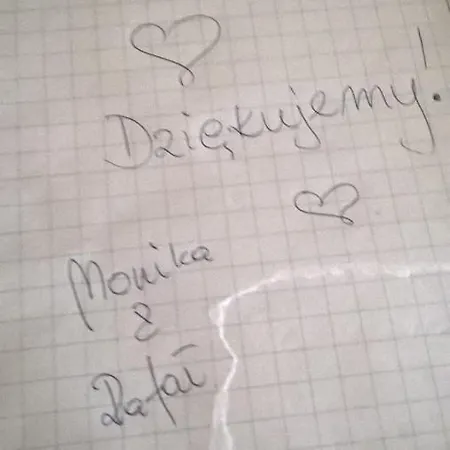 Dziękujemy!
Monika
&
Rafał